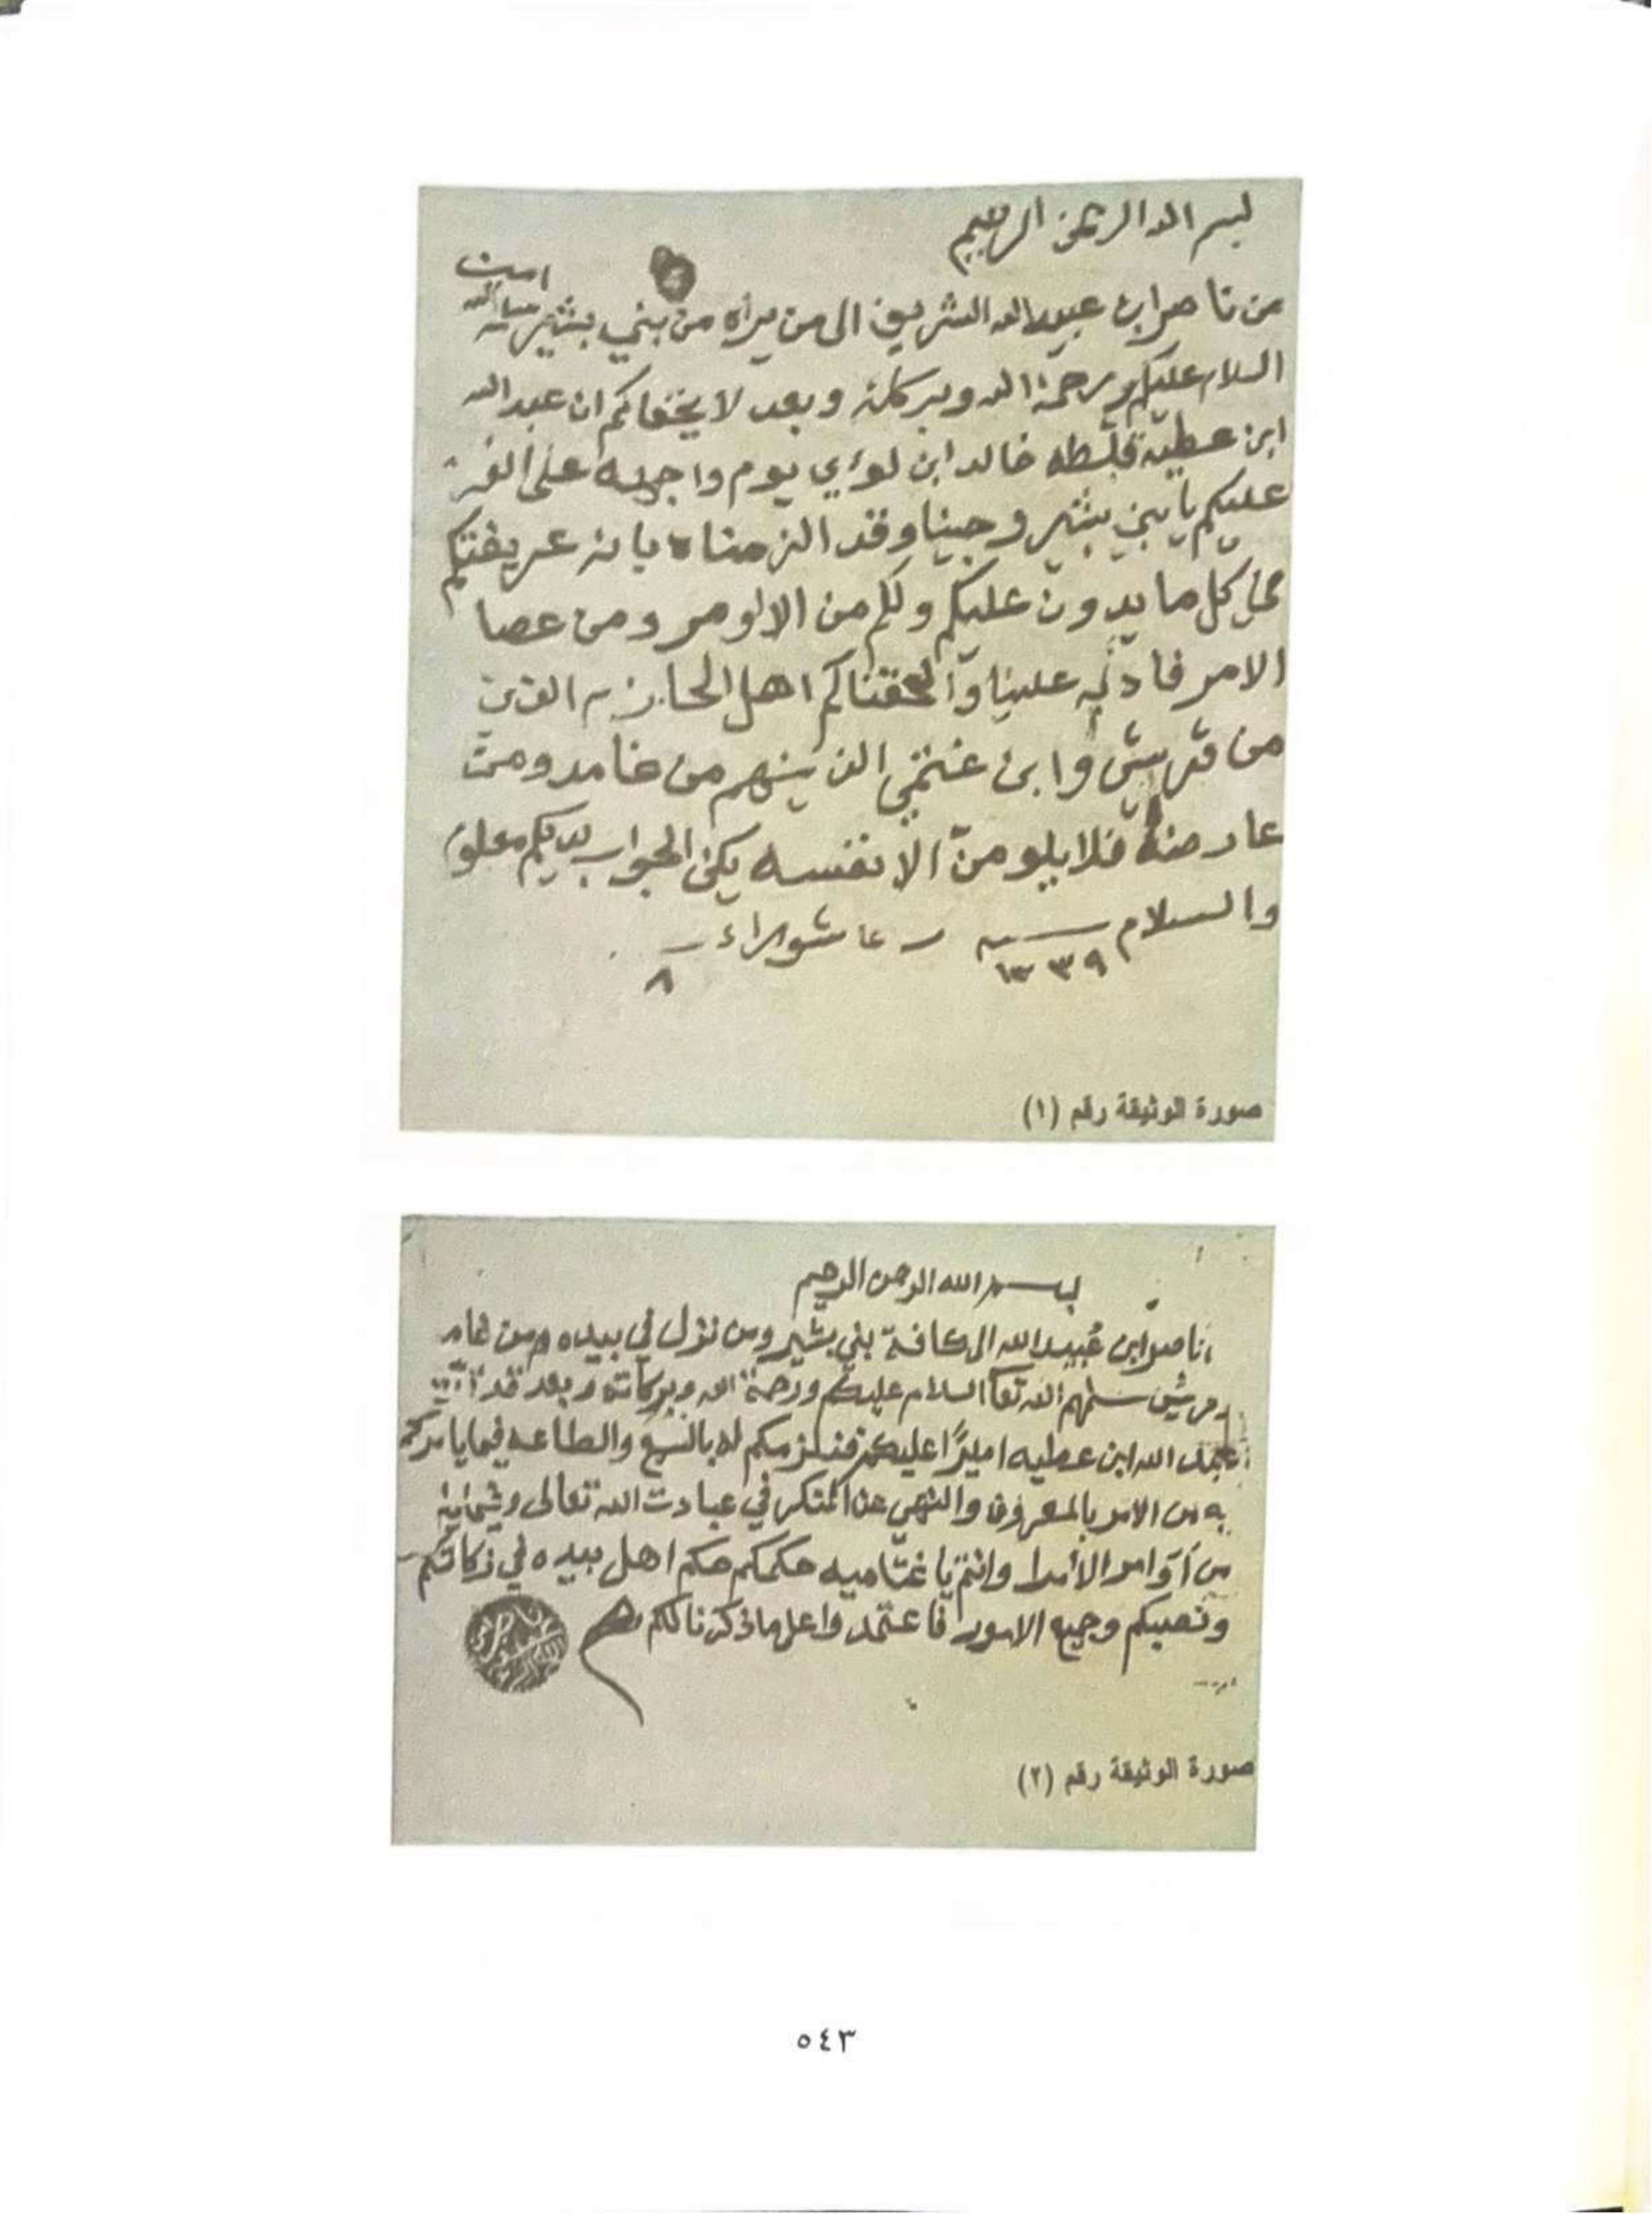 بسم الله الرحمن الرحيم
امين
من ناصر ابن عبيد الله الشريف الى من يراه من بني بشير
السلام عليكم ورحمة الله وبركاته وبعد لا يخفاكم ان عبد الله
ابن عطيه خالد ابن لؤي يوم واجهه على
عليكم يا بني بشير وجينا وقد الزمناه بانه عريفتكم
كل ما يدون عليكم ولكم من الاوامر ومن عصا
الامر علينا والحقناكم اهل الذين
من قريش وابن غنمي الذينهم من غامد ومن
عارضه فلا يلومن الا نفسه يكن الجواب لديكم معلوم
والسلام ١٣٣٩ عاشوراء
٨
صورة الوثيقة رقم (١)
بسم الله الرحمن الرحيم
ناصر ابن عبيد الله الى كافة بني بشير ومن نزل في بيده ومن
سلمهم الله تعا السلام عليكم ورحمة الله وبركاته وبعد قد
عبد الله ابن عطيه اميرًا عليكم فنلزمكم له بالسمع والطاعه فيما يامركم
به من الامر بالمعروف والنهي عن المنكر في عبادت الله تعالى
من اوامر الأمرا وانتم يا حكمكم حكم اهل بيده في زكاتكم
وجميع الامور فاعتمدوا على ما ذكرنا لكم
صورة الوثيقة رقم (٢)
٥٤٣